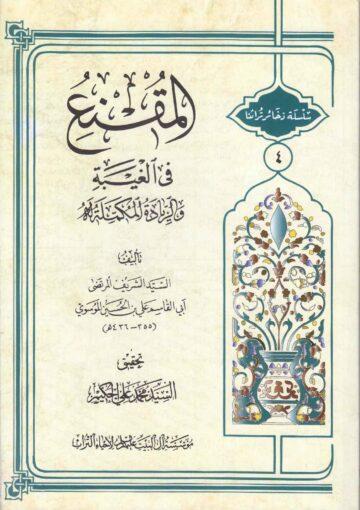 سلسلة ذخائر تراثنا
٤
المقنع
في الغيبة
والزيادة المكملة له
تأليف
السيد الشريف المرتضى
أبي القاسم علي بن الحسين الموسوي
(٣٥٥ - ٤٣٦ هـ)
تحقيق
السيد محمد علي الحكيم
مؤسسة آل البيت عليهم السلام لإحياء التراث